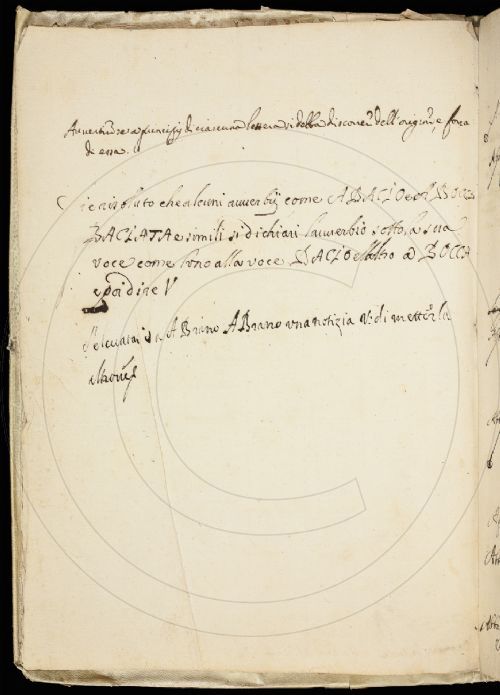 Avvertire a principij di ciascuna lettera si debba discorrer dell'origine, e forza
di essa.
Si è risoluto che alcuni avverbij come A BACIO et A BOCC
BACIATA e simili si dichiari l'avverbio sotto la sua
voce come l'uno alla voce BACIO e l'altro a BOCCA
e poi dire V
levata da A Brano A Brano una notizia vidi metterla
altrove